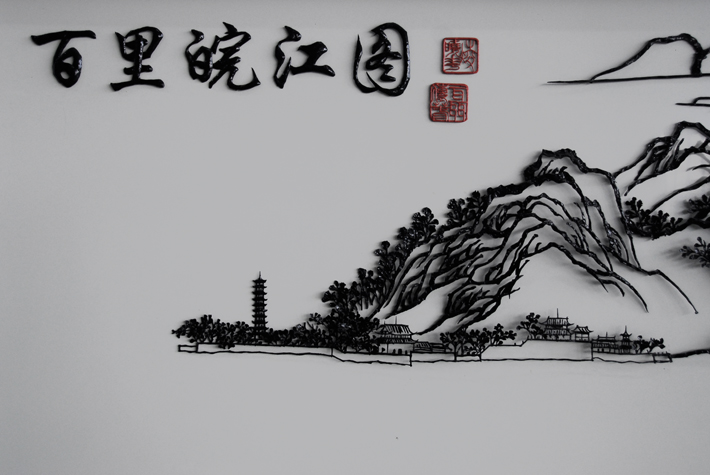 百里皖江图